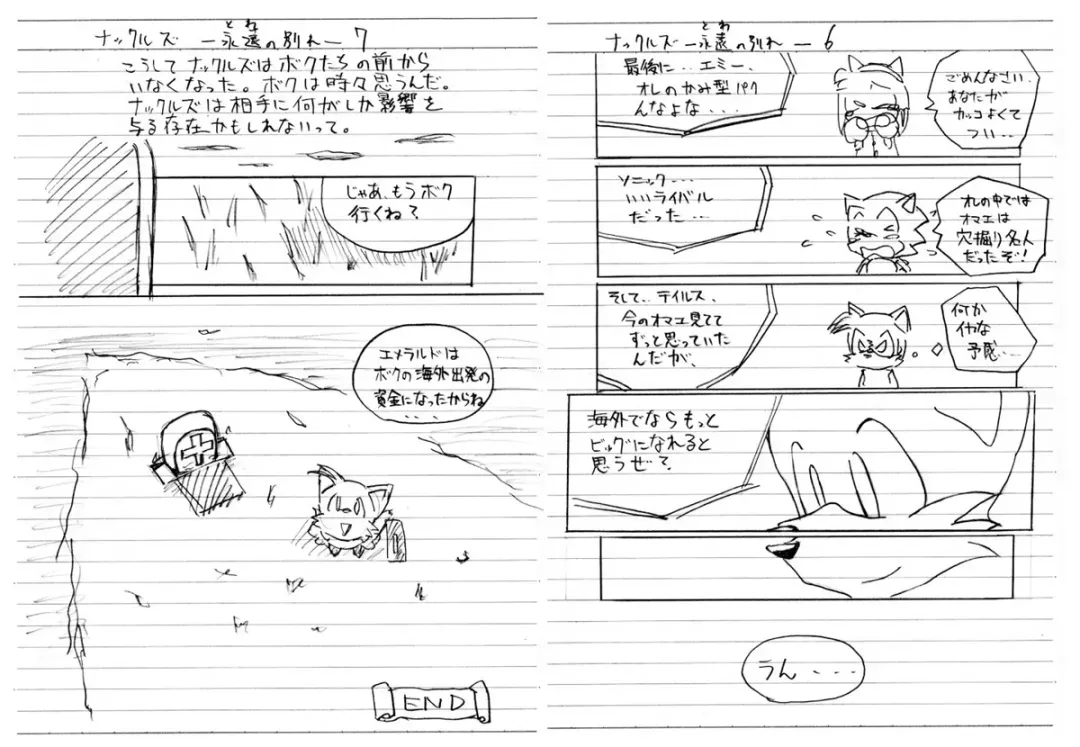 ナックルズ ―永遠の別れ― 6
とわ
最後に‥エミー、
オレのかみ型パク
んなよな・・・
ごめんなさい、
あなたが
カッコよくて
つい・・
ソニック・・・
いいライバル
だった・・・
オレの中では
オマエは
穴掘り名人
だったぞ!
そして‥テイルス、
今のオマエ見てて
ずっと思っていた
んだが、
何か
イヤな
予感・・・
海外でならもっと
ビッグになれると
思うぜ?
うん・・・
ナックルズ ―永遠の別れ― 7
とわ
こうしてナックルズはボクたちの前から
いなくなった。ボクは時々思うんだ。
ナックルズは相手に何がしか影響を
与る存在かもしれないって。
じゃあ、もうボク
行くね?
エメラルドは
ボクの海外出発の
資金になったからね
・・・
END